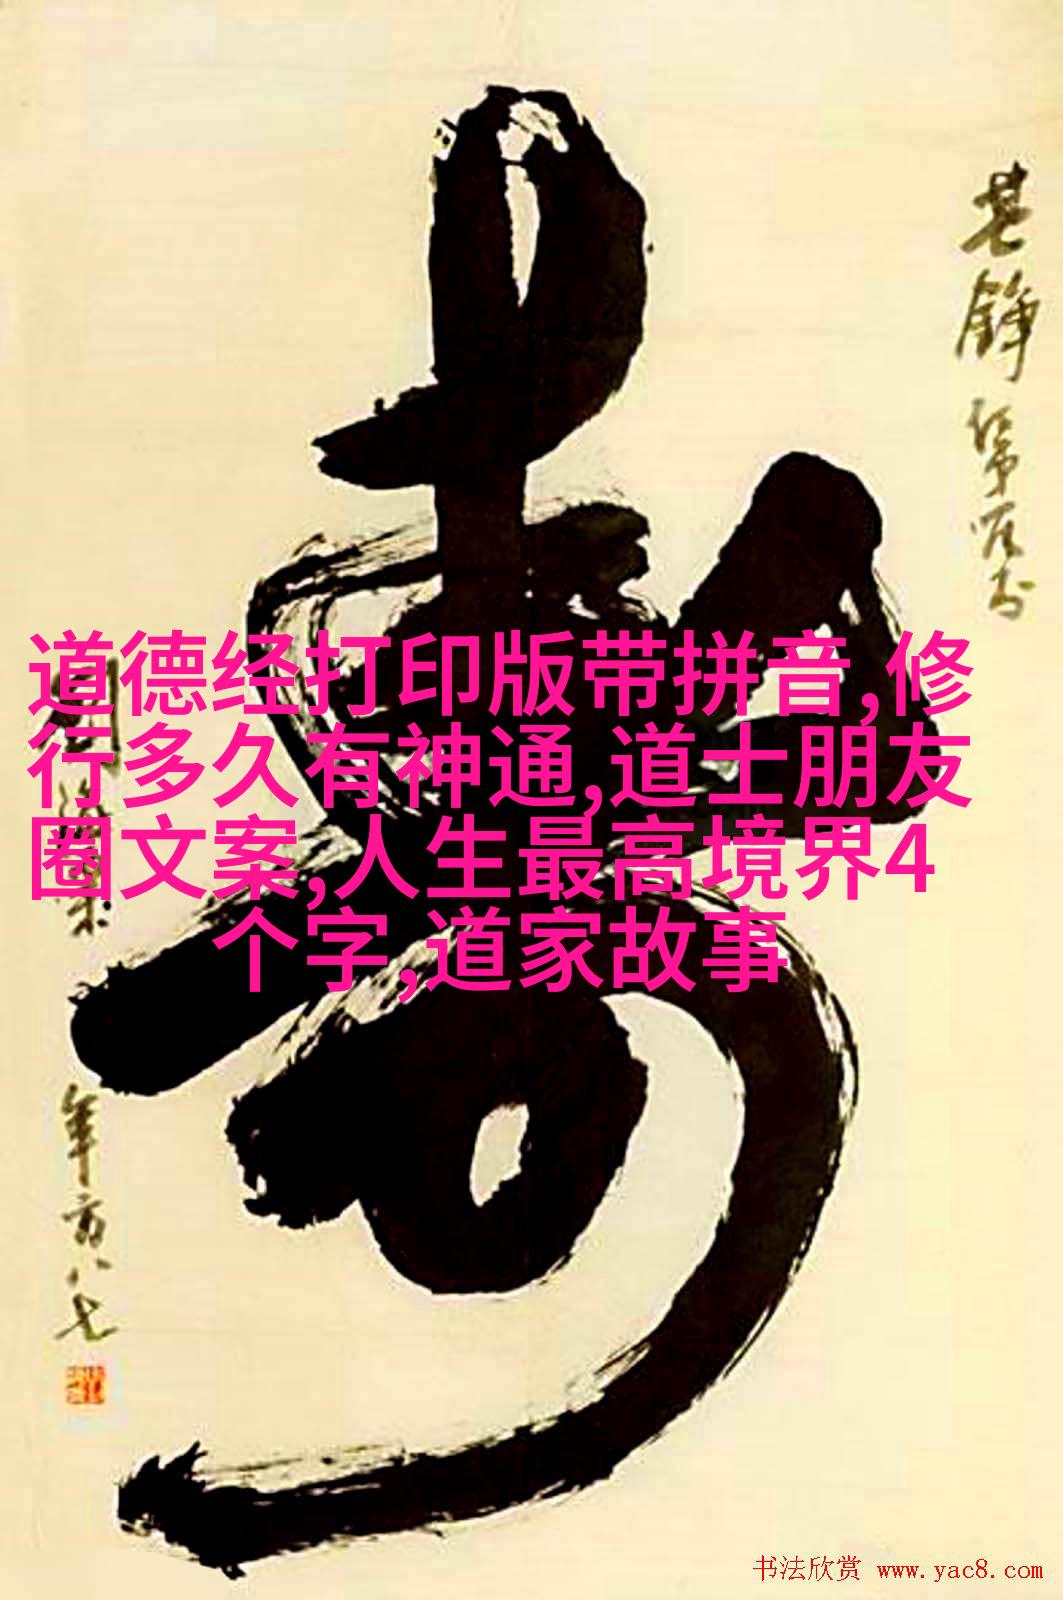 寿
其铮
年方八七
道德经打印版带拼音,修
行多久有神通,道士朋友
圈文案,人生最高境界4
个字,道家故事
书法欣赏 www.yac8.com